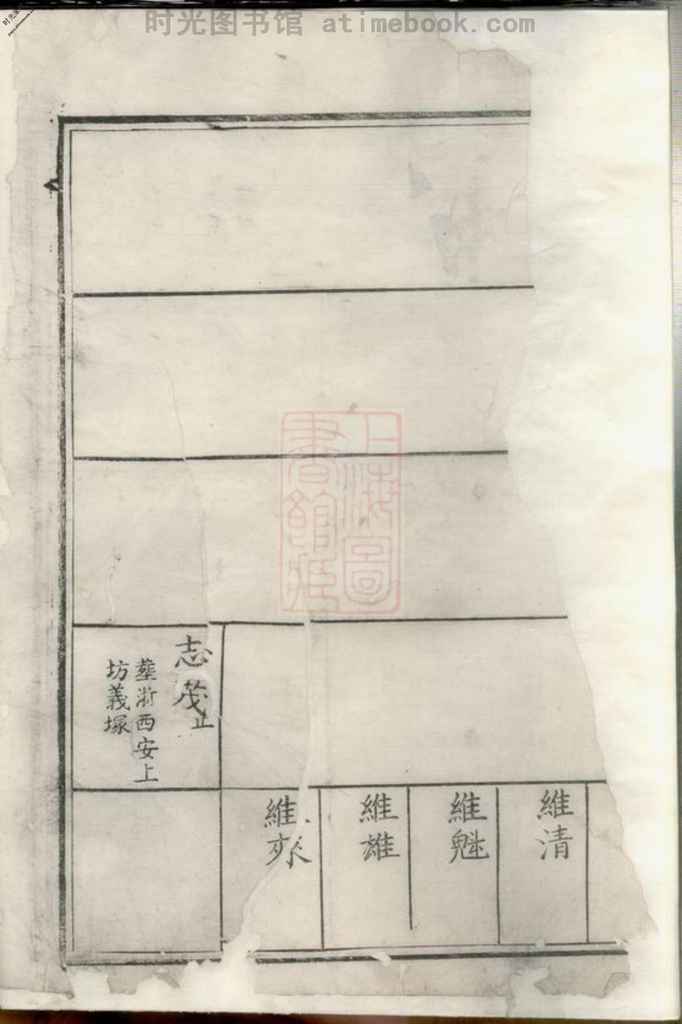 时光图书馆 atimebook.com
維清
維魁
維雄
維
志茂止
塟浙西安上
坊義塚
上海圖
書館藏